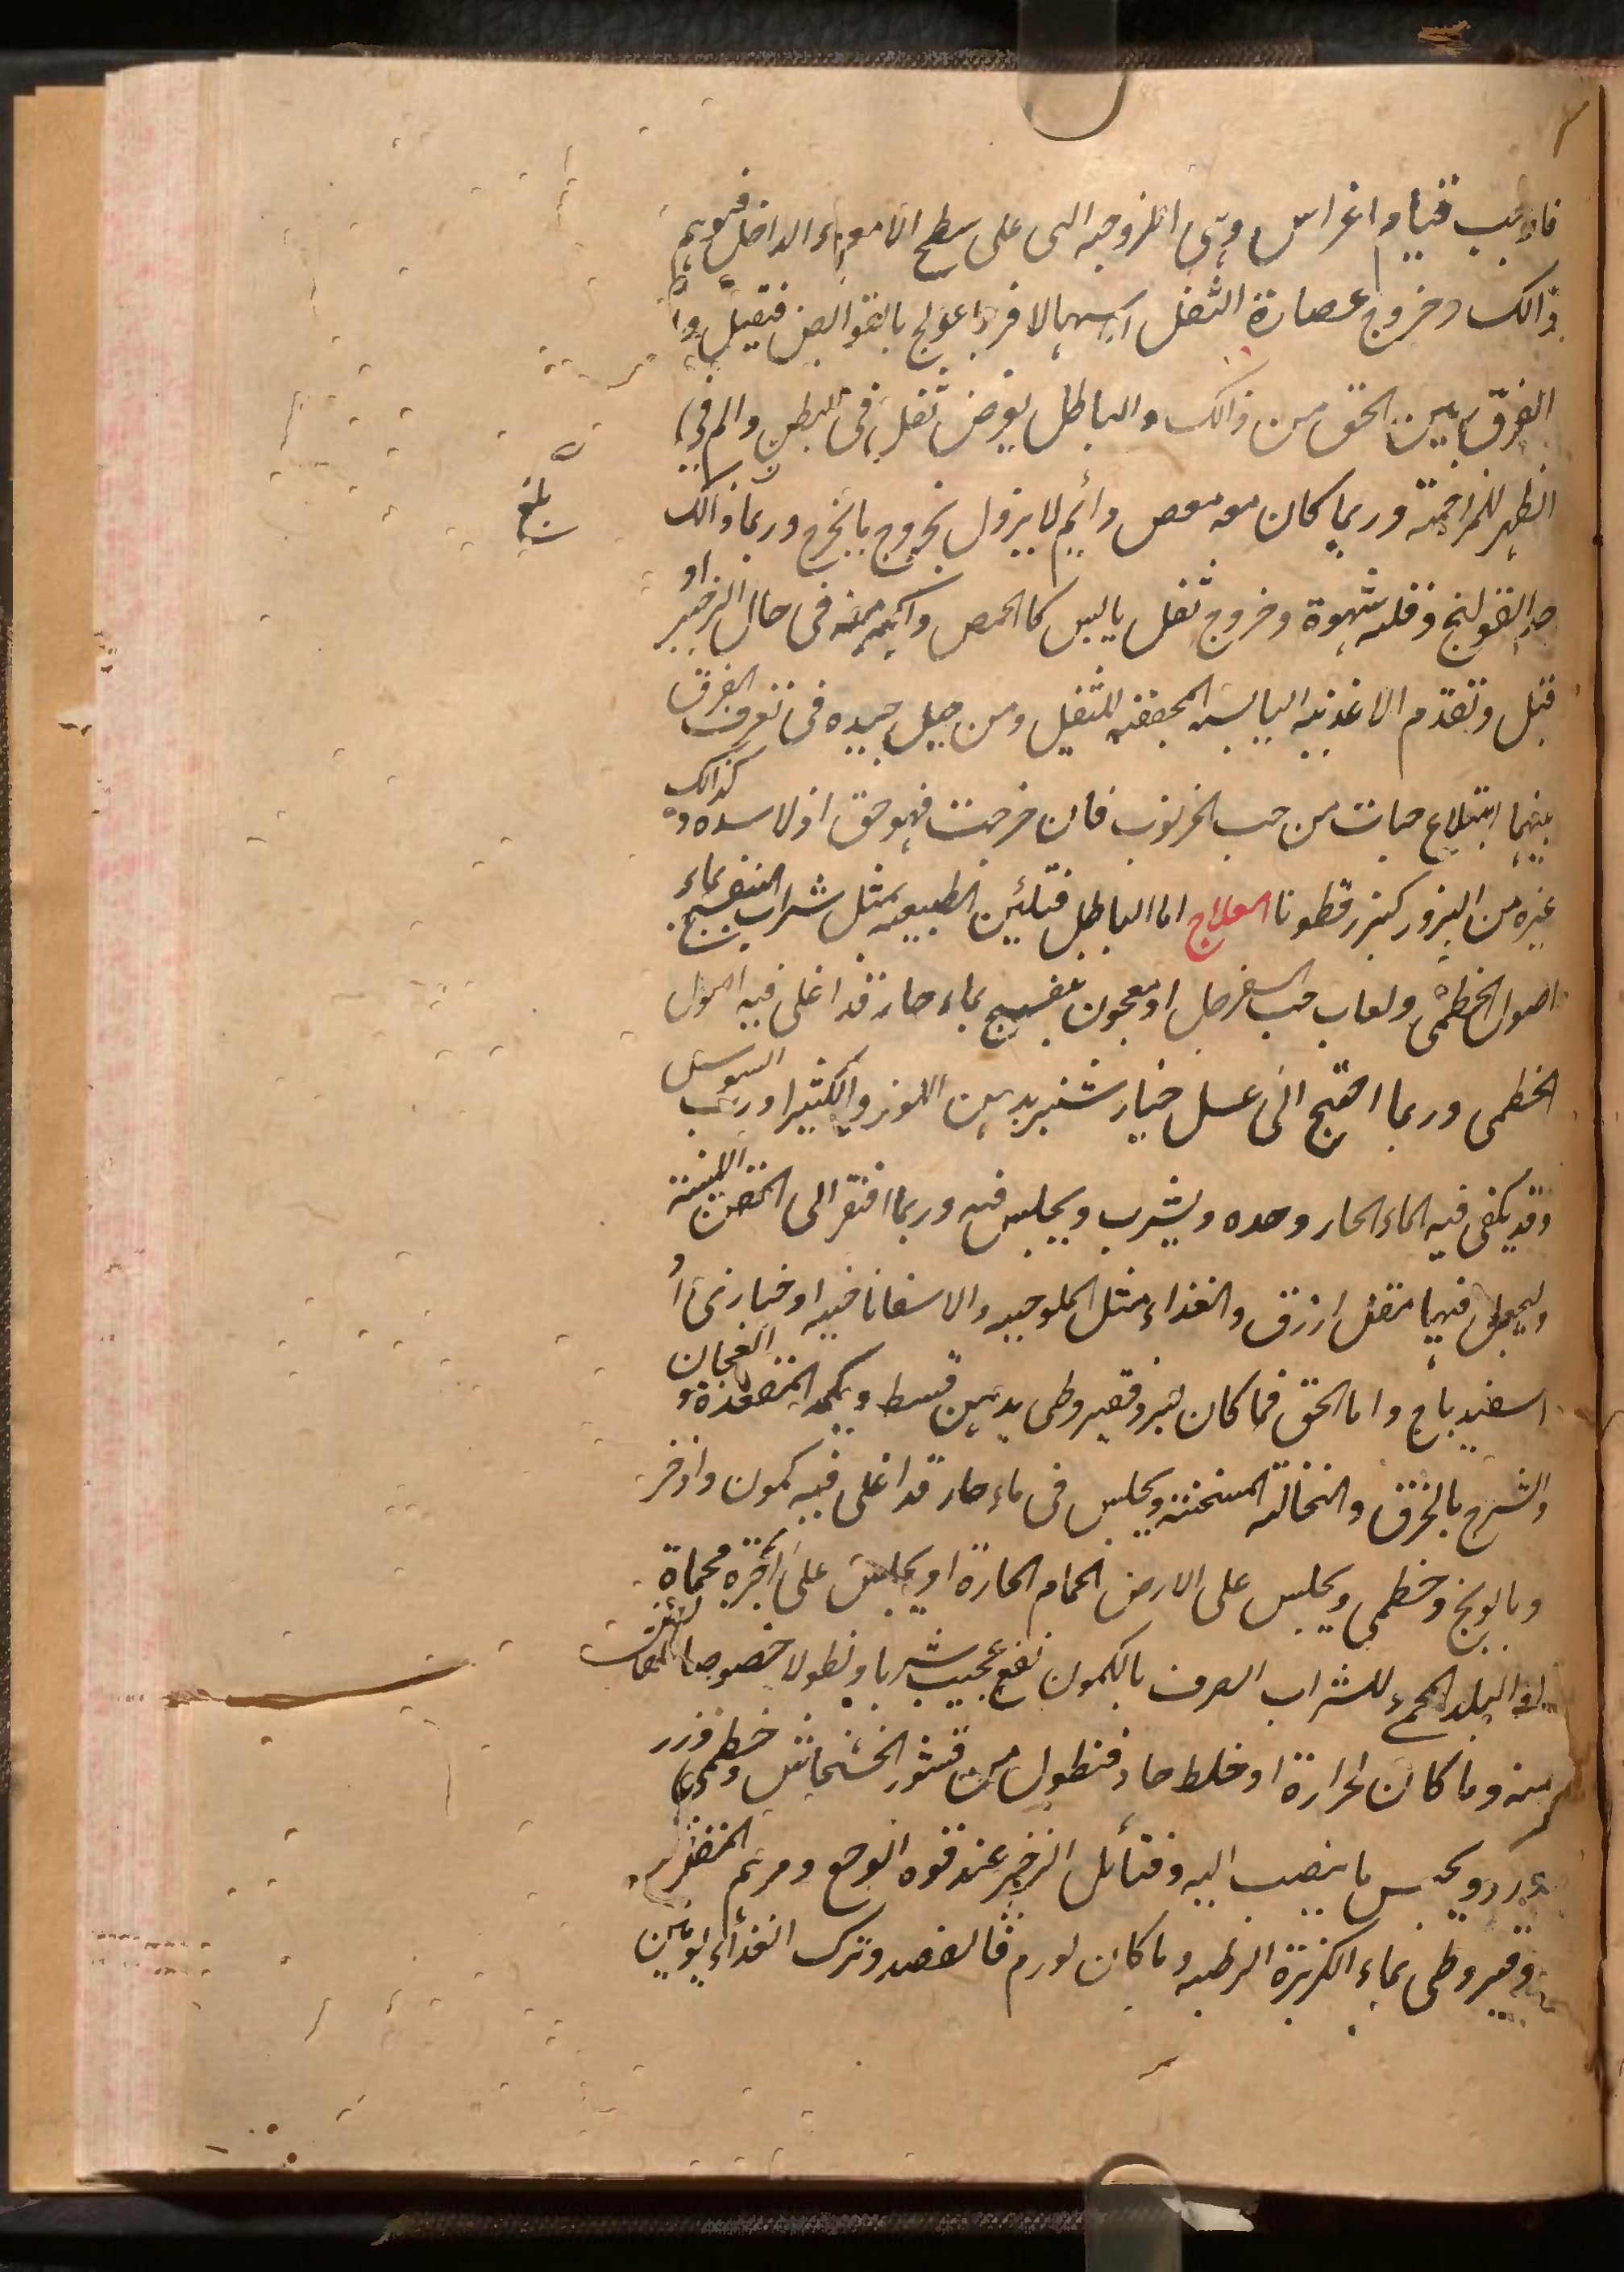 فاوجب قيا واغراس وهى اللزوجه التى على سطح الامعاء الداخل فيوهم
ذالك وخروج عصارة الثفل اسهالا فربما عولج بالقوابض فقيل وا
الفرق بين الحق من ذالك والباطل يعرض ثقل فى البطن والم فى
الظهر للمزاحمة وربما كان معه مغص دائم لا يزول بخروج ما يخرج وربما ذالك
بلغ
القولنج وقلة شهوة وخروج ثفل يابس كالحمص واكثر منه فى حال الزحير او
قبل وتقدم الاغذيه اليابسه المجففه للثفل ومن حيل جيده فى تعرف الفرق
بينهما ابتلاع حبات من حب الخرنوب فان خرجت فهو حق اذ لا سده و كذالك
غيره من البزور كبزر قطونا العلاج اما الباطل فتليين الطبيعه بمثل شراب البنفسج بماء
اصول الخطمى ولعاب حب السفرجل او معجون بنفسج بماء حار قد اغلى فيه اصول
الخطمى وربما احتيج الى عسل خيار شنبر بدهن اللوز والكثيرا ورب السوس
وقد يكفى فيه الماء الحار وحده ويشرب ويجلس فيه وربما افتقر الى الحقن اللينة
وليجعل فيها مقل ازرق والغذاء مثل الملوخيه والاسفاناخيه او خبازى أو
اسفيدباج واما الحق فما كان لبرد فقيروطى بدهن قسط ويكمد المقعدة و العجان
والشرج بالخرق والنخالة المسخنه ويجلس فى ماء حار قد اغلى فيه كمون واذخر
وبابونج وخطمى ويجلس على الارض الحمام الحارة او يجلس على أجرة محماة
او البلد المحمى للشراب الصرف بالكمون نفع عجيب شربا ونطولا خصوصا
منه وما كان لحرارة او خلط حاد فنطول من قشور الخشخاش وخطمى وزر
ورد ويحبس ما ينصب اليه وفتائل الزحير عند قوه الوجع ومرهم
وقيروطى بماء الكزبرة الرطبه وما كان لورم فالفصد وترك الغذاء يومين